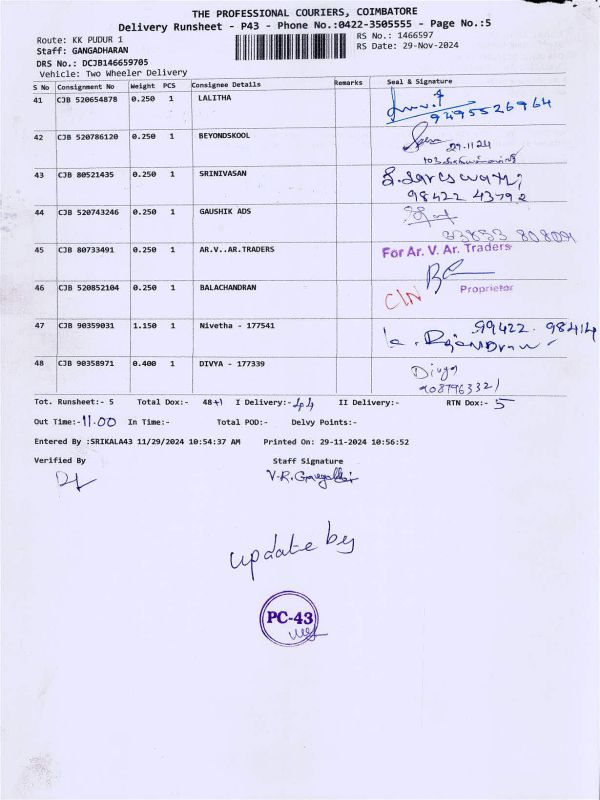 THE PROFESSIONAL COURIERS, COIMBATORE
Delivery Runsheet - P43 - Phone No.:0422-3505555 - Page No.:5
Route: KK PUDUR 1
RS No.: 1466597
Staff: GANGADHARAN
RS Date: 29-Nov-2024
DRS No.: DCJB146659705
Vehicle: Two Wheeler Delivery
S No Consignment No Weight PCS Consignee Details Remarks Seal & Signature
41 CJB 520654878 0.250 1 LALITHA
9495526964
42 CJB 520786120 0.250 1 BEYONDSKOOL
29.11.24
43 CJB 80521435 0.250 1 SRINIVASAN
98422 43792
44 CJB 520743246 0.250 1 GAUSHIK ADS
45 CJB 80733491 0.250 1 AR.V..AR.TRADERS
For Ar. V. Ar. Traders
46 CJB 520852104 0.250 1 BALACHANDRAN
Proprietor
47 CJB 90359031 1.150 1 Nivetha - 177541
99422. 98414
48 CJB 90358971 0.400 1 DIVYA - 177339 Divya
9087963321
Tot. Runsheet:- 5 Total Dox:- 48+1 I Delivery:- 44 II Delivery:- RTN Dox:- 5
Out Time:- 11.00 In Time:- Total POD:- Delvy Points:-
Entered By :SRIKALA43 11/29/2024 10:54:37 AM Printed On: 29-11-2024 10:56:52
Verified By Staff Signature
update by
PC-43